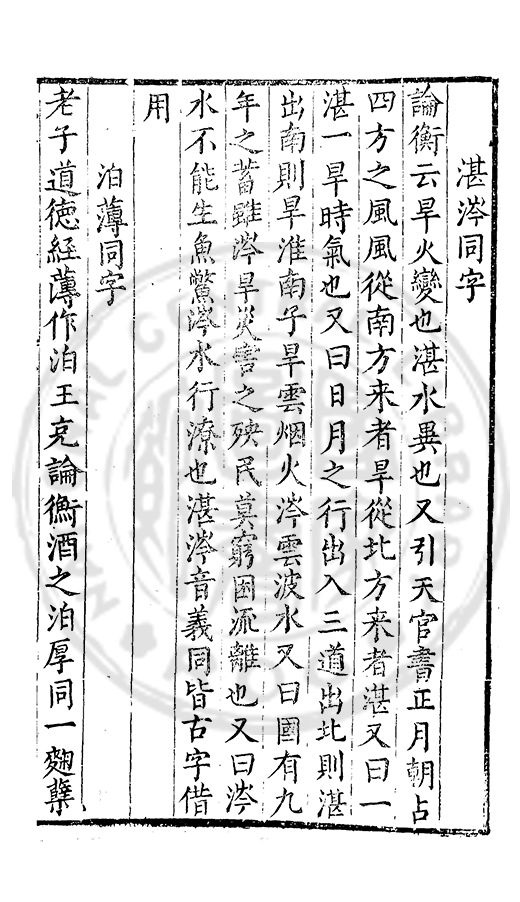 湛涔同字
論衡云旱火變也湛水異也又引天官書正月朝占
四方之風風從南方来者旱從北方来者湛又曰一
湛一旱時氣也又曰日月之行出入三道出北則湛
出南則旱淮南子旱雲烟火涔雲波水又曰國有九
年之蓄雖涔旱災害之殃民莫窮困流離也又曰涔
水不能生魚鱉涔水行潦也湛涔音義同皆古字借
用
泊薄同字
老子道德經薄作泊王充論衡酒之泊厚同一麴櫱